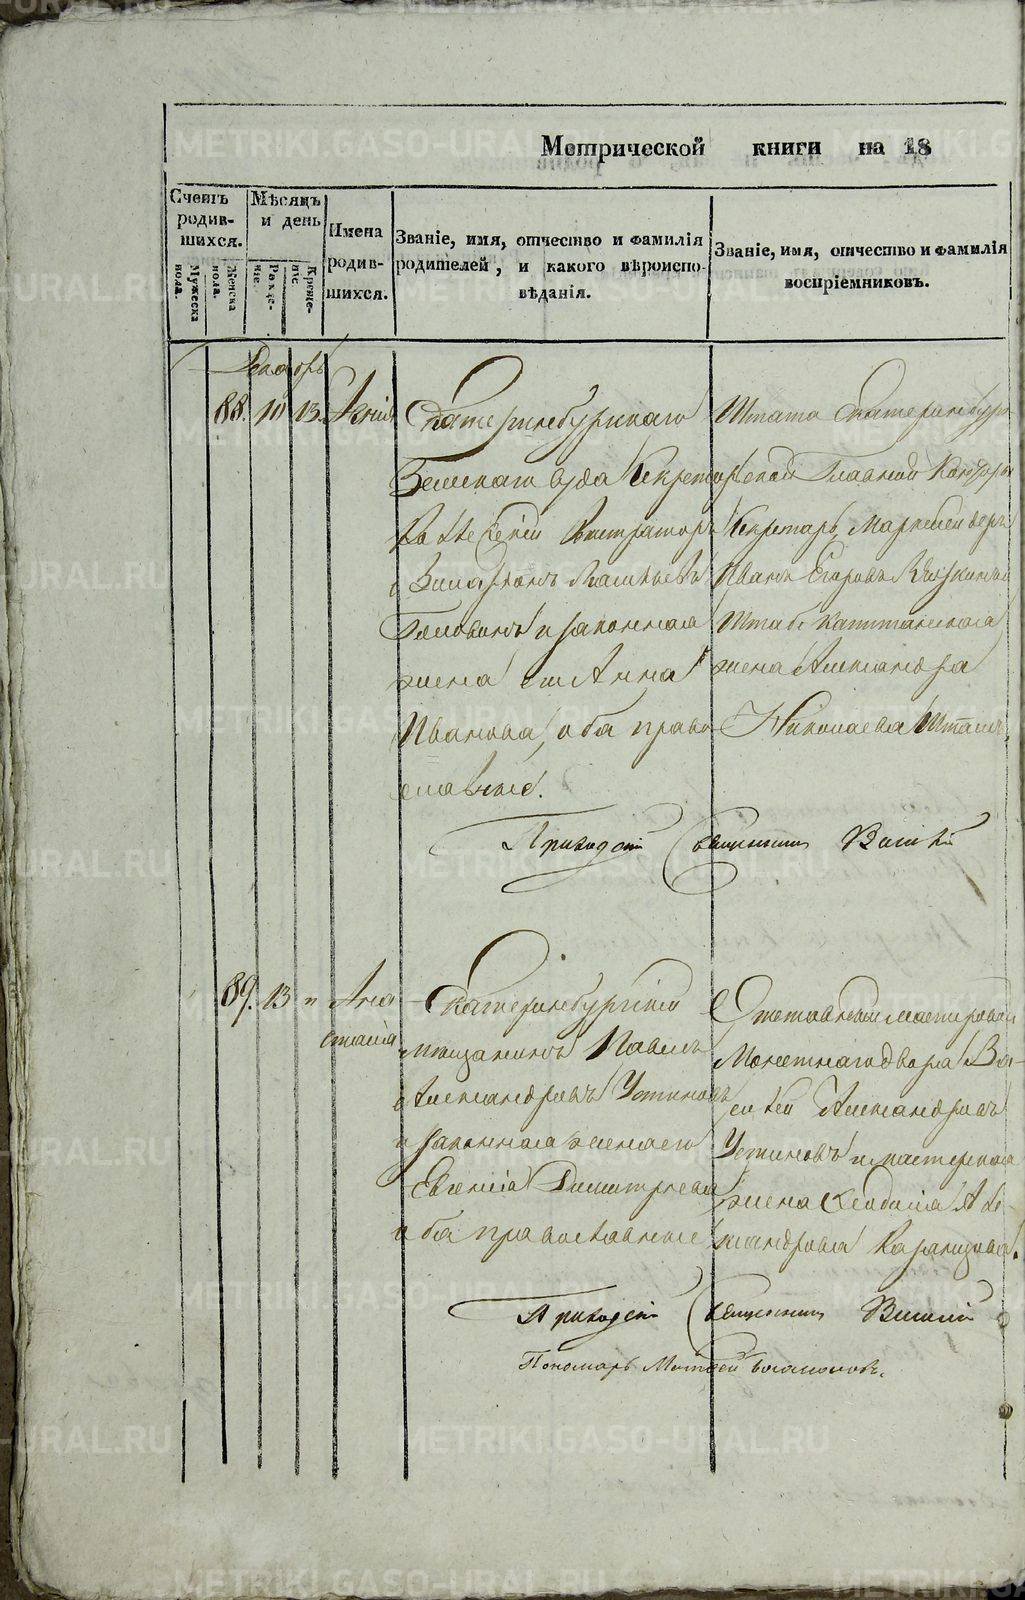 Метрической книги на 18
Счетъ родившихся.
Мужеска пола.
Женска пола.
Мѣсяцъ и день
Рожденіе.
Крещеніе.
Имена родившихся.
Званіе, имя, отчество и фамилія родителей, и какого вѣроисповѣданія.
Званіе, имя, отчество и фамилія воспріемниковъ.
Декабрь
88. 10 13.
Екатеринбургскаго
Земскаго суда Секретарь
Васильевъ
и законная
жена его Анна
Иванова, оба право
славные.
Штата Екатеринбург
ской Главной Конторы
Секретарь Маркшейдеръ
Иванъ Егоровъ
Штабс Капитанская
жена Александра
Николаева
Приходскій Священникъ
89. 13 "
Ана
стасія
Екатеринбургскій
мещанинъ Павелъ
Александровъ Устиновъ
и законная жена его
Евгенія Димитріева
оба православные
Отставной мастеровой
Монетнаго двора Ва-
силей Александровъ
Устиновъ и мастерская
жена Але-
ксандрова
Приходскій Священникъ
Пономарь
METRIKI.GASO-URAL.RU